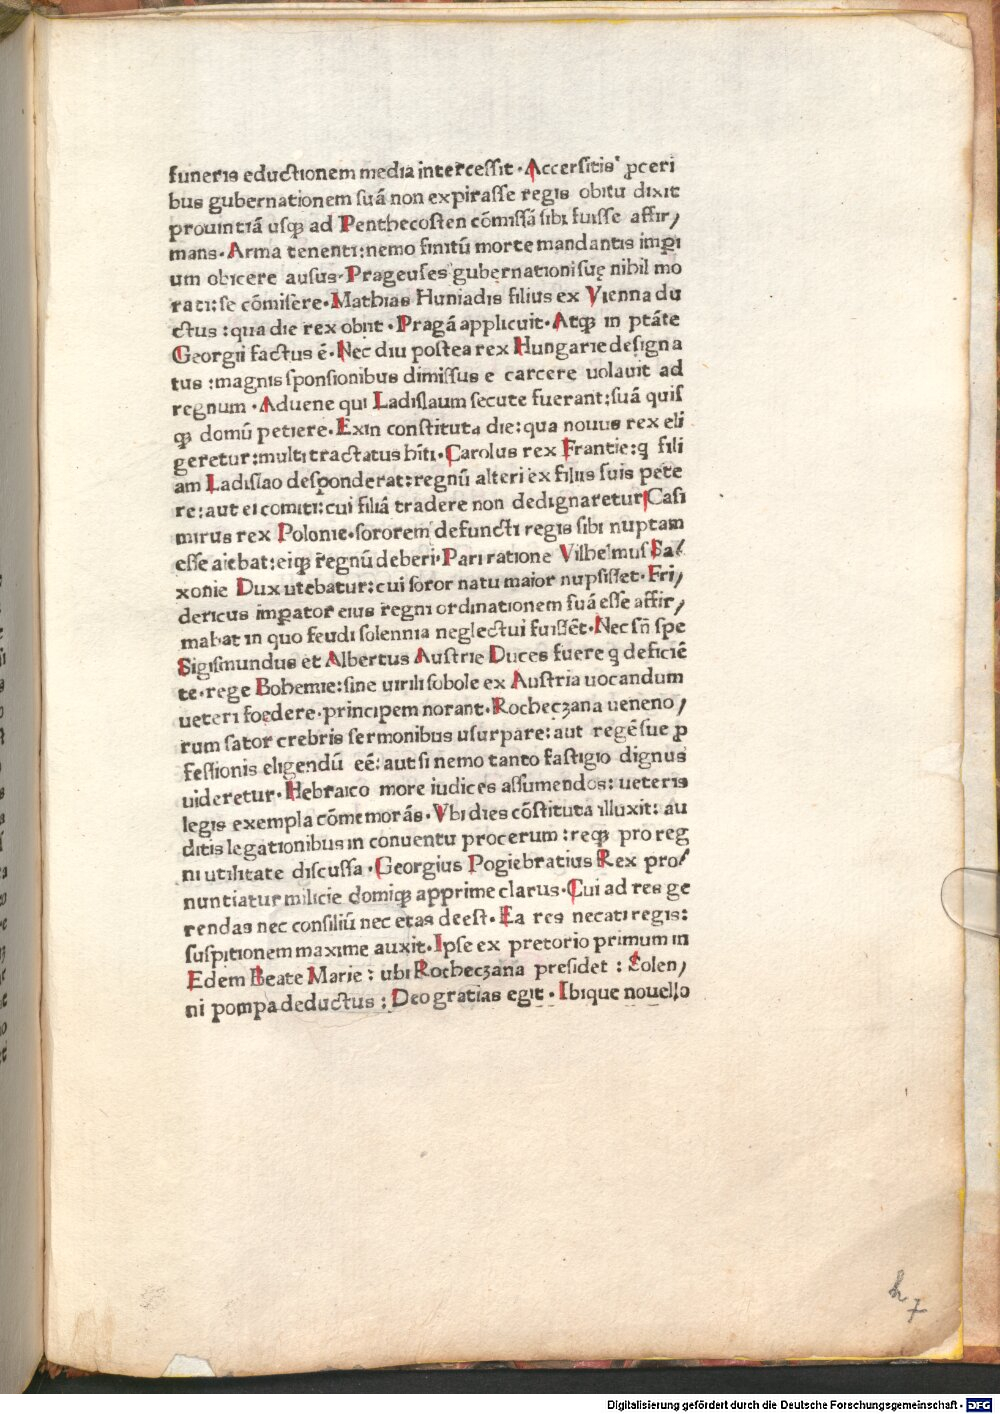 funeris eductionem media intercessit · Accersitis ꝓceri
bus gubernationem suā non expirasse regis obitu dixit
prouintiā usqꝫ ad Penthecosten cōmissā sibi fuisse affir/
mans · Arma tenenti: nemo finitū morte mandantis imꝑi
um obicere ausus · Pragenses gubernationi sue nihil mo
rati: se cōmisere · Mathias Huniadis filius ex Vienna du
ctus : qua die rex obiit · Pragā applicuit · Atqꝫ in ptāte
Georgii factus ē · Nec diu postea rex Hungarie designa
tus : magnis sponsionibus dimissus e carcere uolauit ad
regnum · Aduene qui Ladislaum secute fuerant: suā quis
qꝫ domū petiere · Exin constituta die: qua nouus rex eli
geretur: multi tractatus hīti · Carolus rex Frantie: q fili
am Ladislao desponderat: regnū alteri ex filiis suis pete
re: aut ei comiti: cui filiā tradere non dedignaretur Casi
mirus rex Polonie · sororem defuncti regis sibi nuptam
esse aiebat: eiqꝫ regnū deberi · Pari ratione Vilhelmus Sa/
xonie Dux utebatur: cui soror natu maior nupsisset · Fri/
dericus imꝑator eius regni ordinationem suā esse affir/
mabat in quo feudi solennia neglectui fuissēt · Nec sn̄ spe
Sigismundus et Albertus Austrie Duces fuere q deficiē
te · rege Bohemie: sine uirili sobole ex Austria uocandum
ueteri foedere · principem norant · Rocheczana ueneno/
rum sator crebris sermonibus usurpare: aut regē sue ꝓ
fessionis eligendū eē: aut si nemo tanto fastigio dignus
uideretur · Hebraico more iudices assumendos: ueteris
legis exempla cōmemorās · Vbi dies cōstituta illuxit: au
ditis legationibus in conuentu procerum : reqꝫ pro reg
ni utilitate discussa · Georgius Pogiebratius Rex pro/
nuntiatur milicie domiqꝫ apprime clarus · Cui ad res ge
rendas nec consiliū nec etas deest · Ea res necati regis:
suspitionem maxime auxit · Ipse ex pretorio primum in
Edem Beate Marie : ubi Rocheczana presidet : Solen/
ni pompa deductus : Deo gratias egit · Ibique nouello
h 7
Digitalisierung gefördert durch die Deutsche Forschungsgemeinschaft · DFG